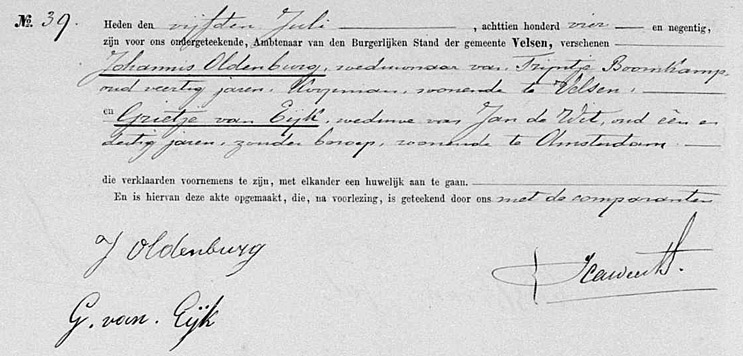 No. 39.
Heden den vijfden Juli, achttien honderd vier en negentig,
zijn voor ons ondergeteekende, Ambtenaar van den Burgerlijken Stand der gemeente Velsen, verschenen
Johannis Oldenburg, weduwnaar van Trijntje Boomkamp,
oud veertig jaren, wonende te Velsen,
en Grietje van Eijk, weduwe van Jan de Wit, oud één en
dertig jaren, zonder beroep, wonende te Amsterdam.
die verklaarden voornemens te zijn, met elkander een huwelijk aan te gaan.
En is hiervan deze akte opgemaakt, die, na voorlezing, is geteekend door ons met de comparanten
J Oldenburg
G. van. Eijk